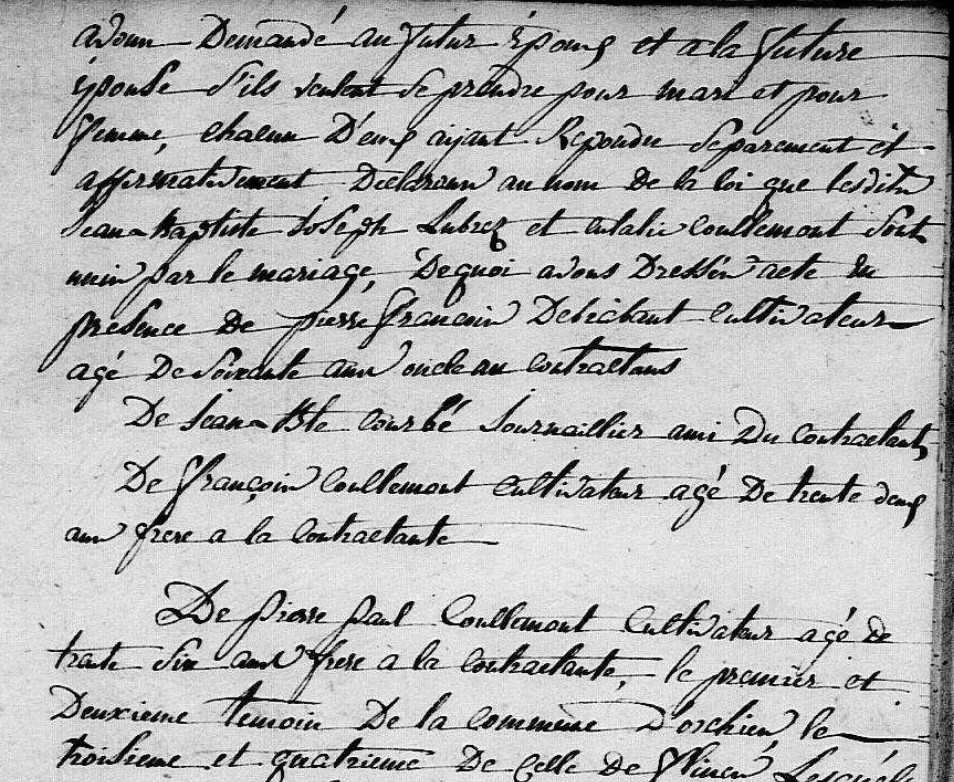 avons Demandé au futur Epoux et a la future
épouse s'ils veulent se prendre pour mari et pour
femme, chacun D'eux aijant Repondu separement et
affirmativement Declarons au nom de la loi que lesdits
Jean-Baptiste Joseph Lubrez et eulalie coullemont sont
unis par le mariage, Dequoi avons Dressés acte En
presence de pierre françois cultivateur
agé De soixante ans oncle au contractans
De Jean-Bte courbé Journaillier ami Du contractant,
De françois Coullemont cultivateur agé De trente deux
ans frere a la contractante
De pierre paul Coullemont Cultivateur agé de
trente six ans frere a la contractante, le premier et
Deuxieme temoin De la commune D'orchies le
troisieme et quatrieme De celle de flines Lesquels